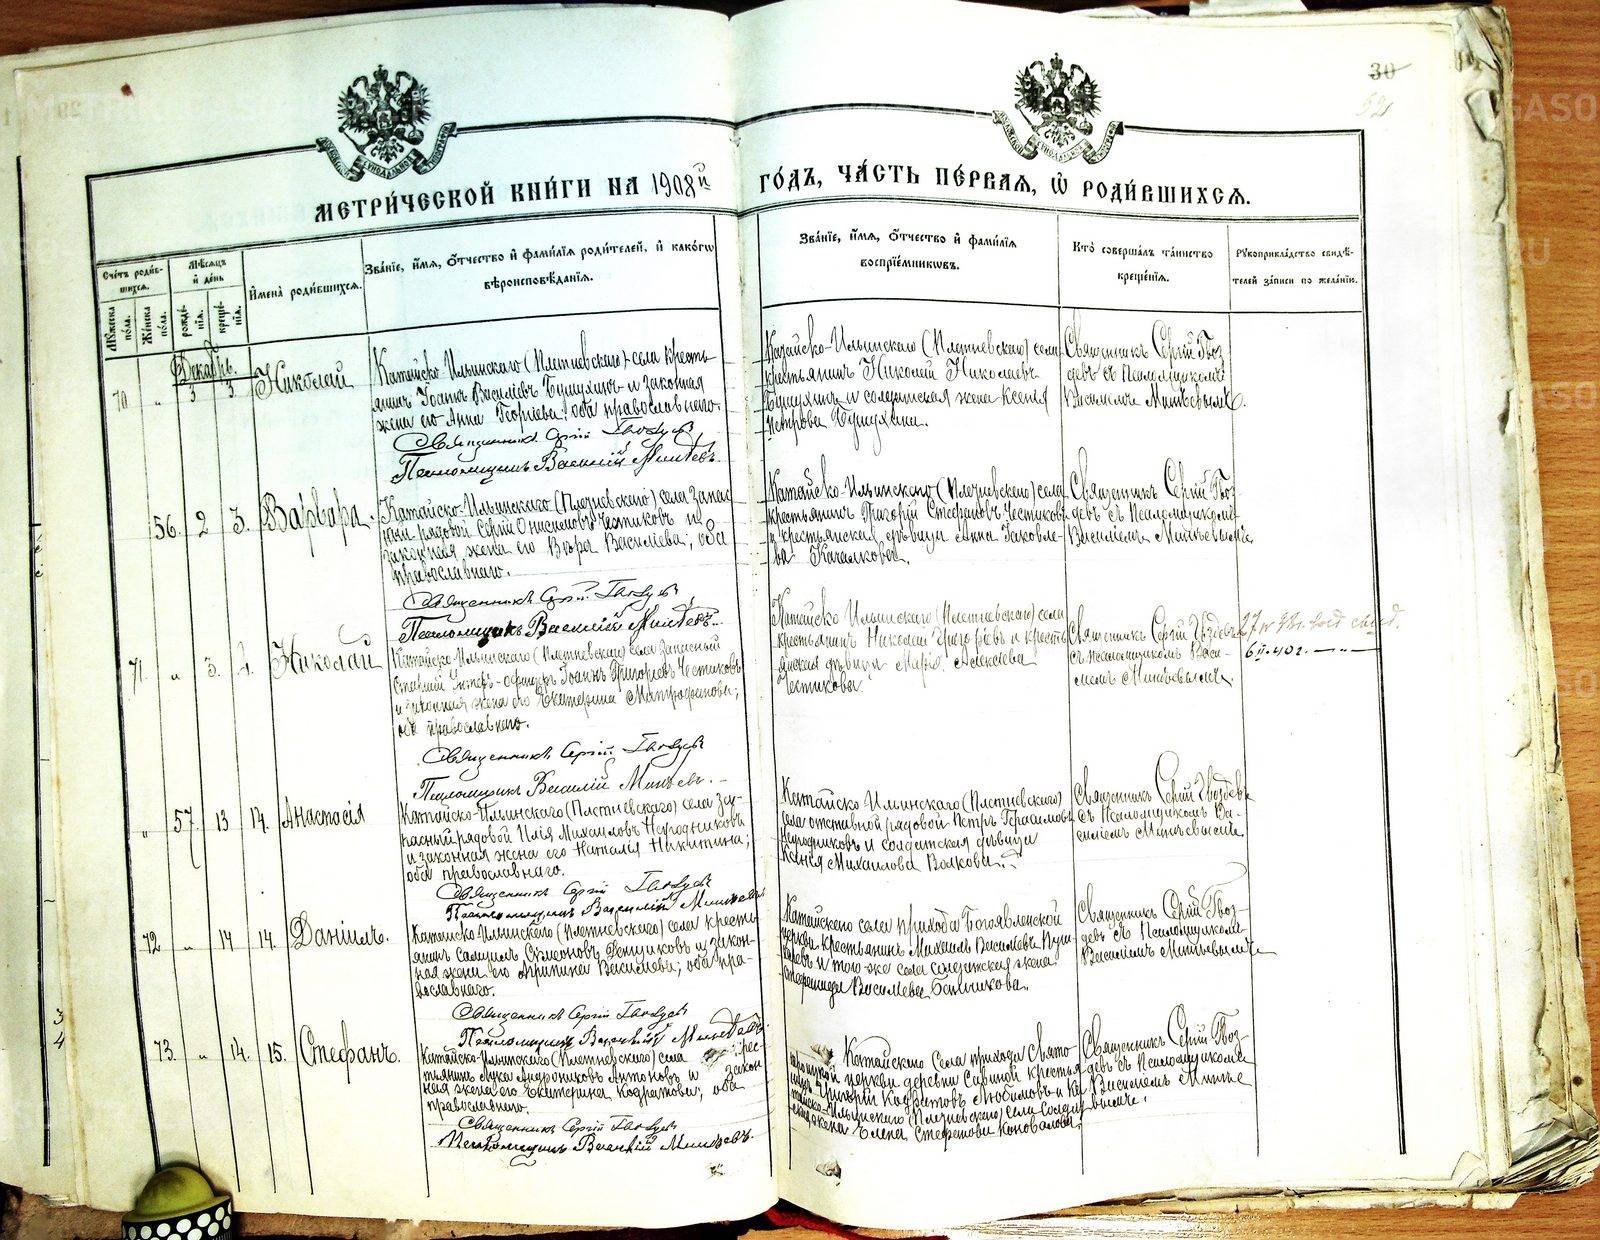 30
МЕТРИ́ЧЕСКОЙ КНИ́ГИ НА 1908й ГО́ДЪ, ЧА́СТЬ ПЕ́РВАѦ, Ѡ РОДИ́ВШИХСѦ.
Сче́тъ роди́в-
шихсѧ.
Мѹ́жеска по́ла.
Же́нска по́ла.
Мѣ́сѧцъ и҆ де́нь
рожде́-
нїѧ.
креще́-
нїѧ.
И҆мена̀ роди́вшихсѧ.
Зва́нїе, и҆́мѧ, ѻ҆́тчество и҆ фами́лїѧ роди́телей, и҆ како́гѡ
вѣроисповѣ́данїѧ.
Зва́нїе, и҆́мѧ, ѻ҆́тчество и҆ фами́лїѧ
воспрїе́мникѡвъ.
Кто̀ соверша́лъ та́инство
креще́нїѧ.
Рѹкоприкла́дство свидѣ́-
телей за́писи по жела́нїю.
Декабрь.
70 „ 3. 3. Николай
Катайско-Ильинскаго (Плетневскаго) села кресть-
янинъ Іоаннъ Васильевъ и законная
жена его Анна Георгіева; оба православнаго.
Священникъ Сергій Гвоздевъ
Псаломщикъ Василій Минѣевъ.
Катайско-Ильинскаго (Плетневскаго) села
крестьянинъ Николай Николаевъ
и солдатская жена Ксенія
Петрова
Священникъ Сергій Гвоз-
девъ съ Псаломщикомъ
Василіемъ Минѣевымъ.
56. 2 3. Варвара.
Катайско-Ильинскаго (Плетневскаго) села запас-
ный рядовой Сергій Онисимовъ Честиковъ и
законная жена его Вѣра Васильева; оба
православнаго.
Священникъ Сергій Гвоздевъ
Псаломщикъ Василій Минѣевъ.
Катайско-Ильинскаго (Плетневскаго) села
крестьянинъ Григорій Стефановъ Честиковъ
и крестьянская дѣвица Анна Іаковле-
ва
Священникъ Сергій Гвоз-
девъ съ Псаломщикомъ
Василіемъ Минѣевымъ
71 „ 3. 4. Николай
Катайско-Ильинскаго (Плетневскаго) села запасный
старшій унтеръ-офицеръ Іоаннъ Григорьевъ Честиковъ
и законная жена его Екатерина Митрофанова;
оба православнаго.
Священникъ Сергій Гвоздевъ
Псаломщикъ Василій Минѣевъ.
Катайско-Ильинскаго (Плетневскаго) села
крестьянинъ Николай Григорьевъ и кресть-
янская дѣвица Марія Алексіева
Честиковы.
Священникъ Сергій Гвоздевъ
съ псаломщикомъ Васи-
ліемъ Минѣевымъ.
6 II-40 г.
„ 57. 13 14. Анастасія
Катайско-Ильинскаго (Плетневскаго) села за-
пасный рядовой Илія Михаиловъ Народниковъ
и законная жена его Наталія Никитина;
оба православнаго.
Священникъ Сергій Гвоздевъ
Псаломщикъ Василій Минѣевъ
Катайско Ильинскаго (Плетневскаго)
села отставной рядовой Петръ Герасимовъ
Народниковъ и солдатская дѣвица
Ксенія Михаилова Волкова.
Священникъ Сергій Гвоздевъ
съ Псаломщикомъ Ва-
силіемъ Минѣевымъ
72 „ 14 14. Даніилъ.
Катайско-Ильинскаго (Плетневскаго) села кресть-
янинъ Самуилъ Симеоновъ и закон-
ная жена его Ирина Васильева; оба пра-
вославнаго.
Священникъ Сергій Гвоздевъ
Псаломщикъ Василій Минѣевъ.
Катайскаго села прихода Богоявленской
церкви крестьянинъ Михаилъ Васильевъ
и того-же села солдатская жена
Васильева
Священникъ Сергій Гвоз-
девъ съ Псаломщикомъ
Василіемъ Минѣевымъ
73. „ 14. 15. Стефанъ.
Катайско-Ильинскаго (Плетневскаго) села крес-
тьянинъ Лука Андрониковъ Антоновъ и закон-
ная жена его Екатерина Кодратова; оба
православнаго.
Священникъ Сергій Гвоздевъ
Псаломщикъ Василій Минѣевъ.
Катайскаго села прихода Свято-
Троицкой церкви деревни крестья-
нинъ Григорій Кодратовъ Любимовъ и Ка-
тайско-Ильинскаго (Плетневскаго) села солдат-
ская жена Елена Стефанова Коновалова.
Священникъ Сергій Гвоз-
девъ съ Псаломщикомъ
Василіемъ Минѣе-
вымъ.